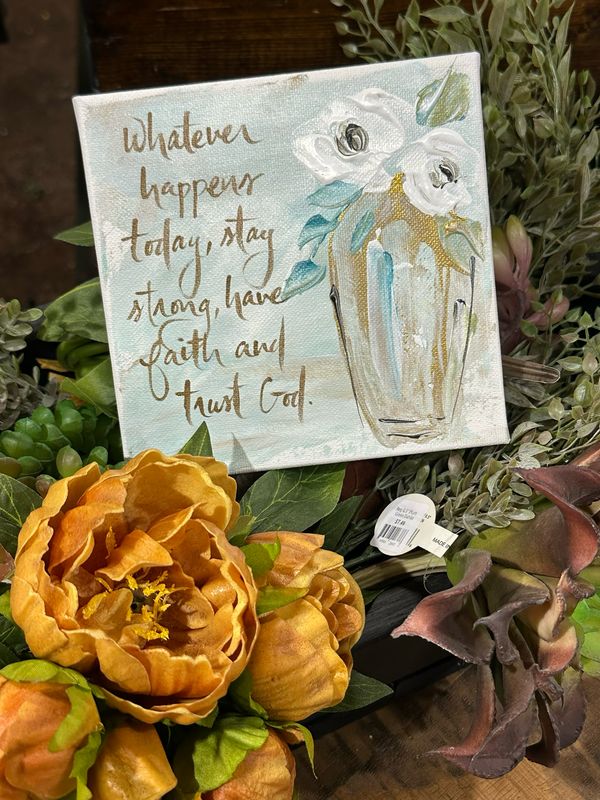 whatever
happens
today, stay
strong, have
faith and
trust God.
$7.49
MADE